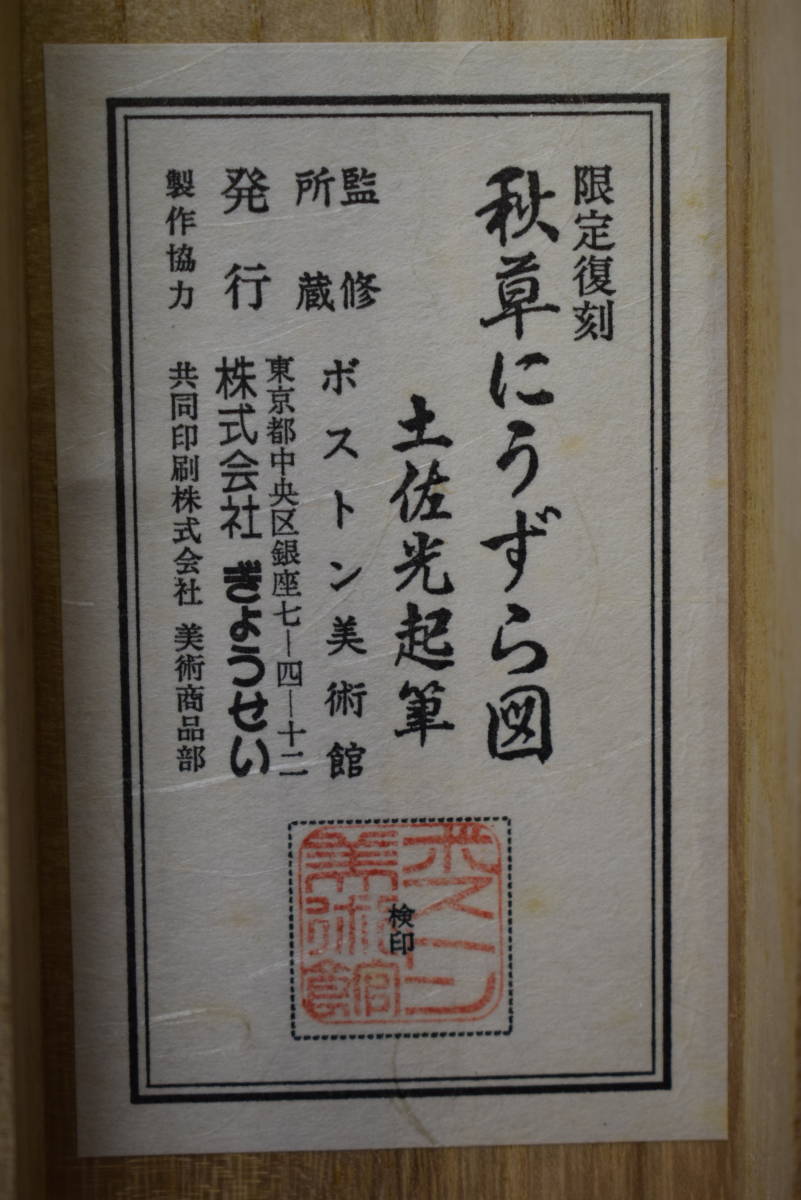 限定復刻
秋草にうずら図
土佐光起筆
監修
所蔵
ボストン美術館
発行
東京都中央区銀座七ー四ー十二
株式会社 ぎょうせい
製作協力
共同印刷株式会社 美術商品部
検印
ボストン
美術館